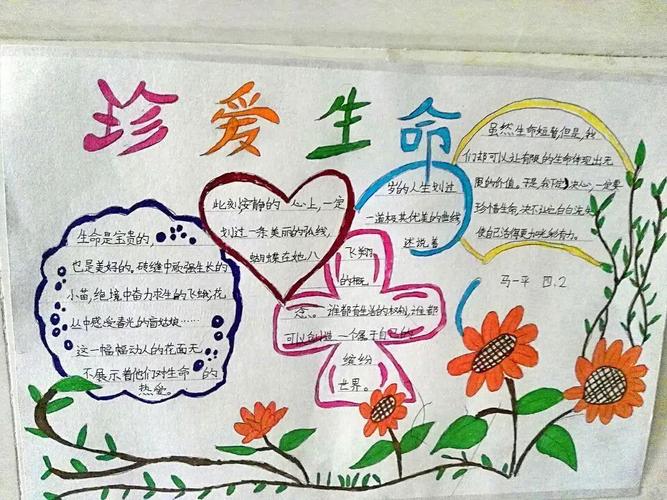 珍爱生命
生命是宝贵的,
也是美好的,砖缝中顽强生长的
小苗,绝境中奋力求生的飞蛾,花
丛中感受春光的盲姑娘……
这一幅幅动人的花面无
不展示着他们对生命的
热爱。
此刻安静的心上,一定
划过一条美丽的弘线,
蝴蝶在她八
岁的人生划过
一道极其优美的曲线
述说着
飞翔
的概
念。谁都有生活的权利,谁都
可以创造一个属于自己的
缤纷
世界。
虽然生命短暂,但是,我
们却可以让有限的生命体现出无
限的价值。于是,我下定决心,一定要
珍惜生命,决不让它白白流失,
使自己活得更加光彩有力。
马一平 四.2